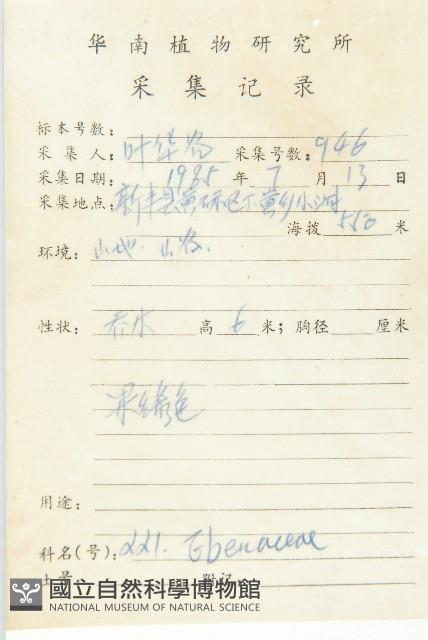 华南植物研究所
采集记录
标本号数：
采集人：叶华谷 采集号数：946
采集日期：1985 年 7 月 13 日
采集地点：新丰县黄 区 黄 小
海拨 550 米
环境：山地. 山谷.
性状：乔木 高 6 米；胸径 厘米
果绿色
用途：
科名(号)：221. Ebenaceae
土名 附记
國立自然科學博物館
NATIONAL MUSEUM OF NATURAL SCIENCE